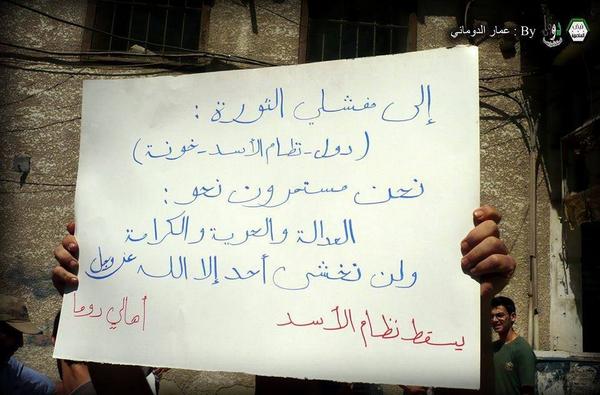 By : عمار الدوماني
إلى مفشلي الثورة :
(دول - نظام الأسد - خونة)
نحن مستمرون نحو :
العدالة والحرية والكرامة
ولن نخشى أحد إلا الله عز وجل
يسقط نظام الأسد
أهالي دوما